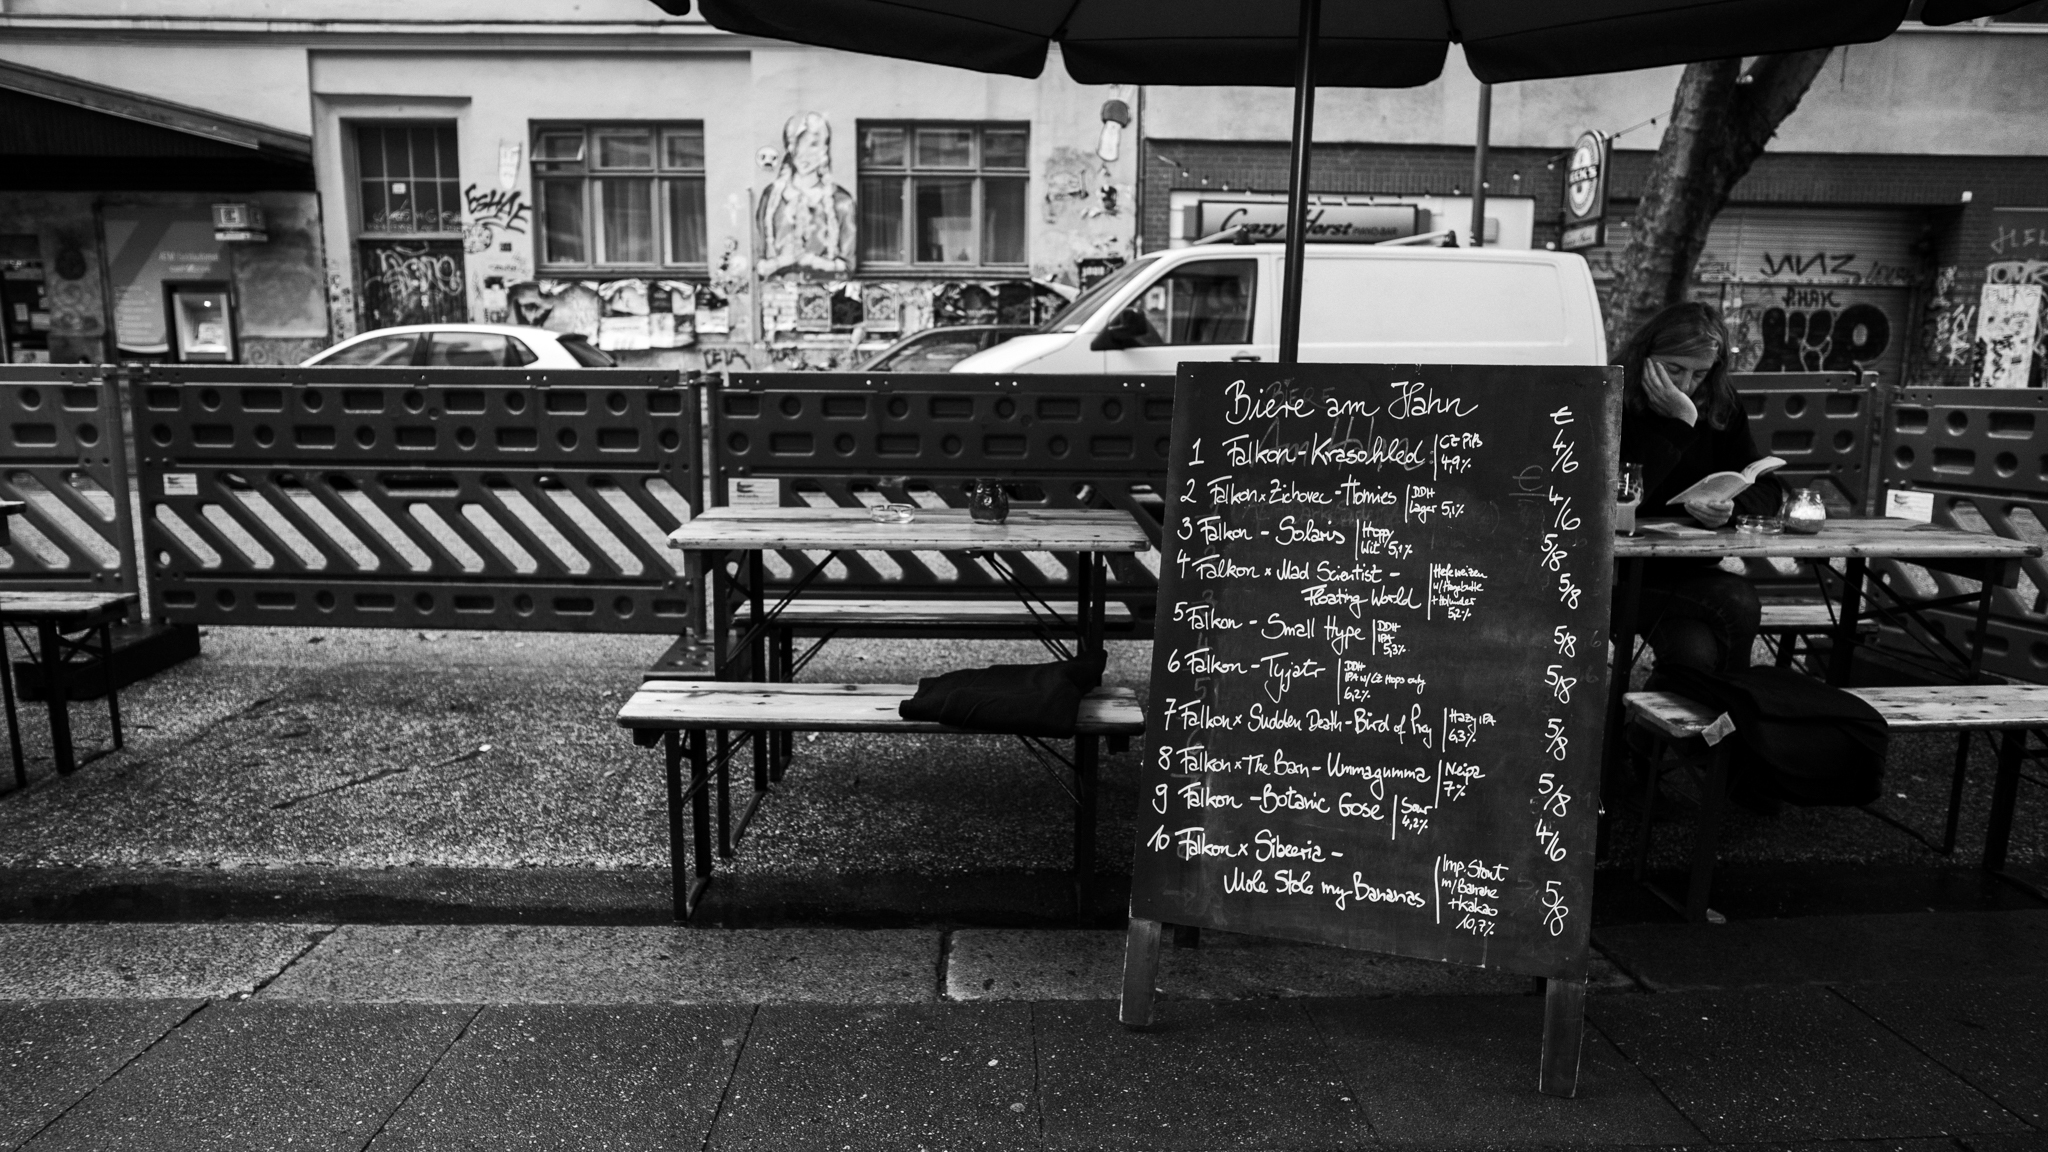 ESHAE
Crazy Horst PIANO-BAR
BECK'S
Biere am Hahn
€
1 Falkon - Krasohled | CZ Pils 4/6
4,9%
2 Falkon x Zichovec - Homies | DDH 4/6
Lager 5,1%
3 Falkon - Solaris | Hoppy 5/8
Wit 5,1%
4 Falkon x Mad Scientist - | Hefeweizen 5/8
Floating World w/Hagebutte
+ Holunder
5,2%
5 Falkon - Small Hype | DDH 5/8
IPA
5,3%
6 Falkon - Tyjátr | DDH 5/8
IPA w/ CZ Hops only
6,2%
7 Falkon x Sudden Death - Bird of Prey | Hazy IPA 5/8
6,3%
8 Falkon x The Barn - Ummagumma | Neipa 5/8
7%
9 Falkon - Botanic Gose | Sour 4/6
4,2%
10 Falkon x Sibeeria - | Imp. Stout 5/8
Mole Stole my Bananas m/Banane
+ Kakao
10,7%